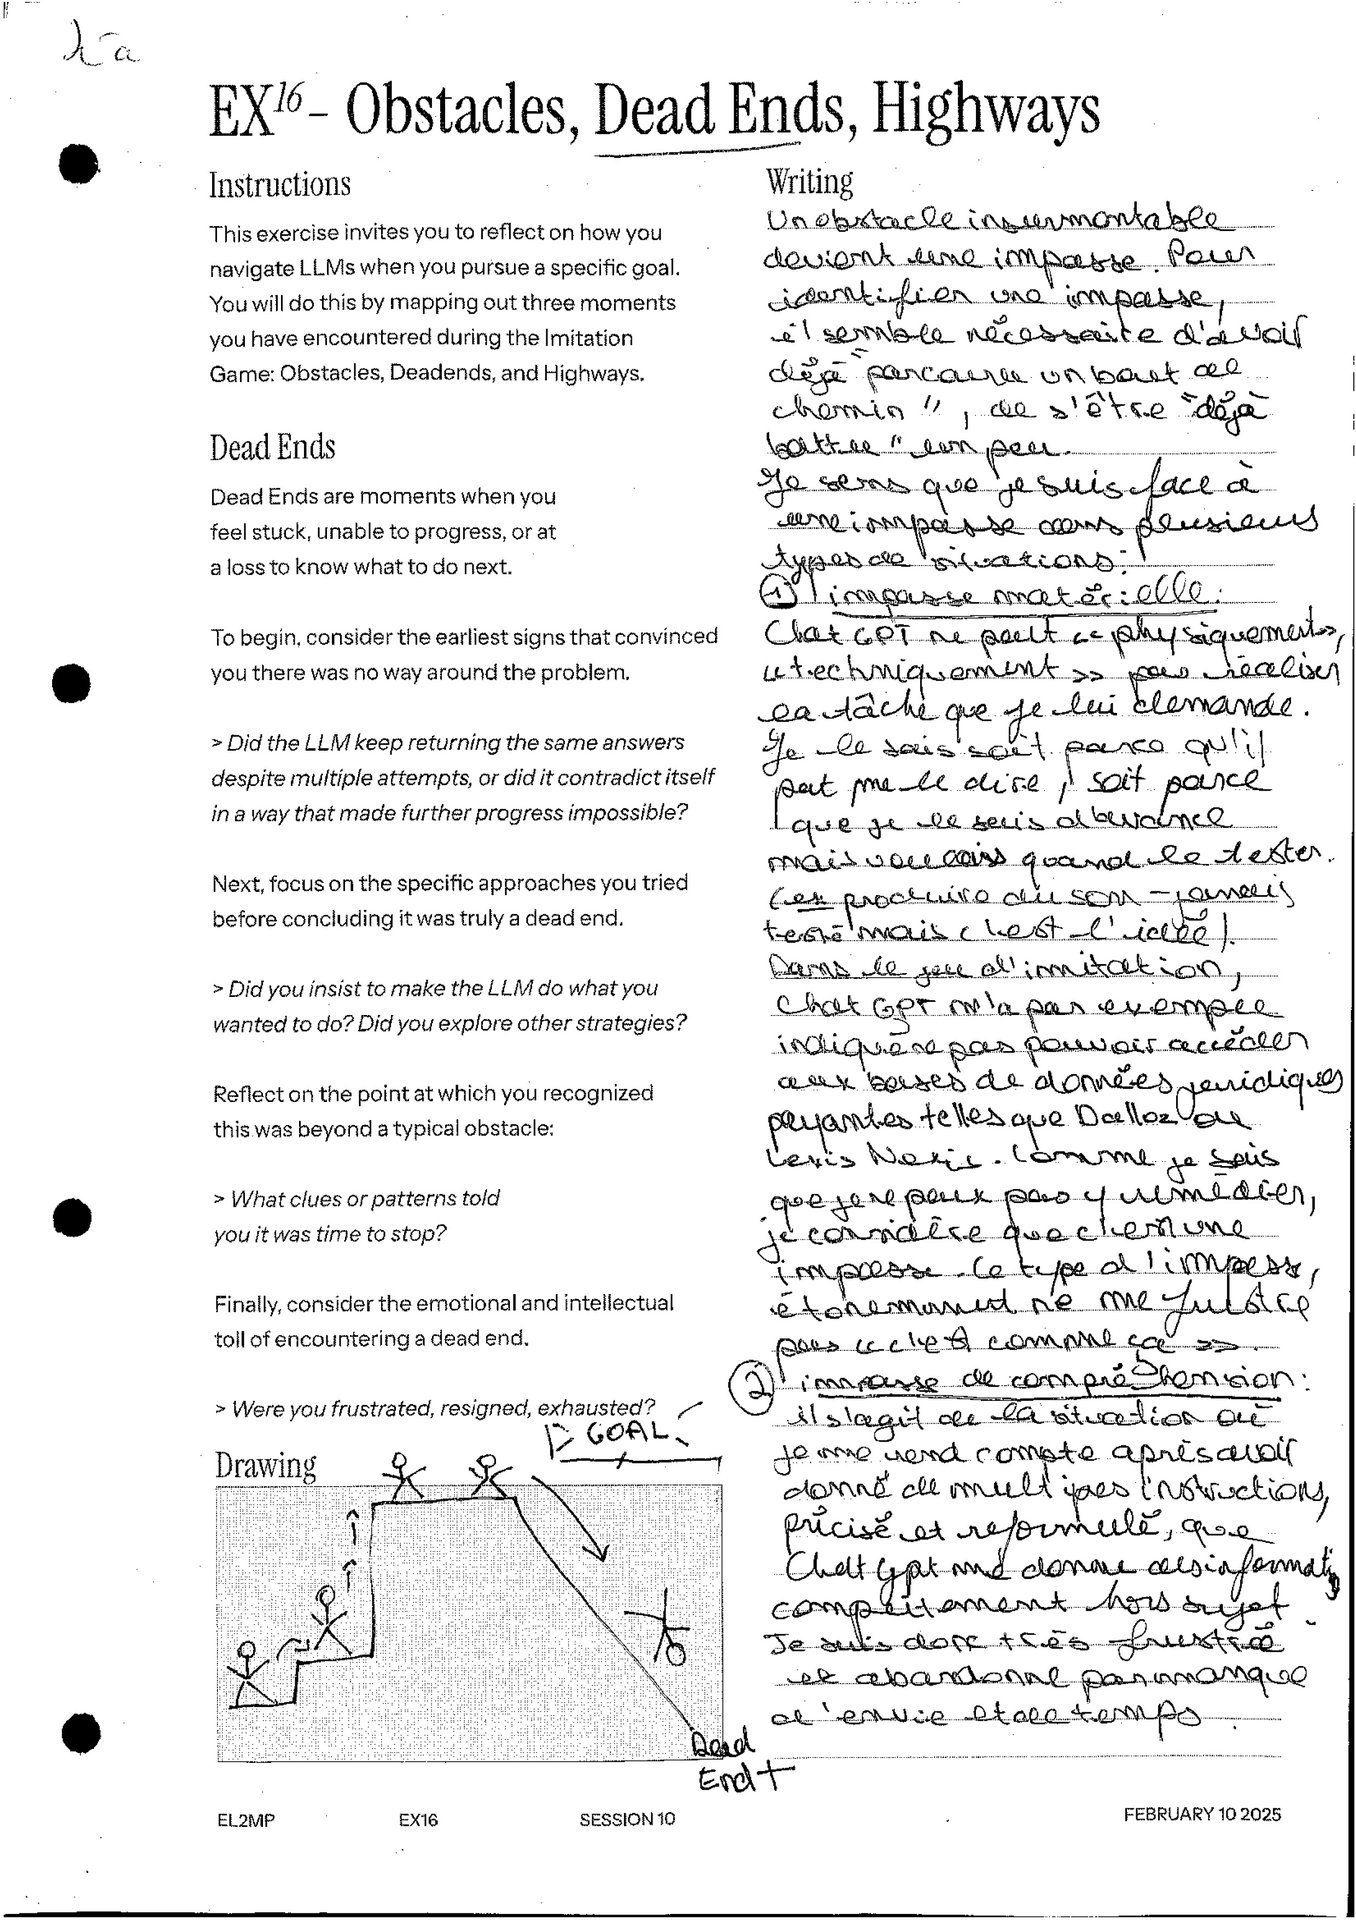 EX16 - Obstacles, Dead Ends, Highways
Instructions
This exercise invites you to reflect on how you
navigate LLMs when you pursue a specific goal.
You will do this by mapping out three moments
you have encountered during the Imitation
Game: Obstacles, Deadends, and Highways.
Dead Ends
Dead Ends are moments when you
feel stuck, unable to progress, or at
a loss to know what to do next.
To begin, consider the earliest signs that convinced
you there was no way around the problem.
> Did the LLM keep returning the same answers
despite multiple attempts, or did it contradict itself
in a way that made further progress impossible?
Next, focus on the specific approaches you tried
before concluding it was truly a dead end.
> Did you insist to make the LLM do what you
wanted to do? Did you explore other strategies?
Reflect on the point at which you recognized
this was beyond a typical obstacle:
> What clues or patterns told
you it was time to stop?
Finally, consider the emotional and intellectual
toll of encountering a dead end.
> Were you frustrated, resigned, exhausted?
Drawing
GOAL
Dead
End
Writing
Un obstacle insurmontable
devient une impasse. Pour
identifier une impasse,
il semble nécessaire d'avoir
déjà "parcouru un bout de
chemin", de s'être "déjà
battu" un peu.
Je sens que je suis face à
une impasse dans plusieurs
types de situations:
① impasse matérielle:
Chat GPT ne peut « physiquement »,
« techniquement » pas réaliser
la tâche que je lui demande.
Je le sais soit parce qu'il
peut me le dire, soit parce
que je le sais d'avance
mais quand le tester.
(ex produire du son - jamais
testé mais c'est l'idée).
Dans le jeu d'imitation,
Chat GPT m'a par exemple
indiqué ne pas pouvoir accéder
aux bases de données juridiques
payantes telles que Dalloz ou
Lexis Nexis. Comme je sais
que je ne peux pas y remédier,
je considère que c'est une
impasse. Ce type d'impasse,
étonemment ne me frustre
pas « c'est comme ça ».
② impasse de compréhension:
il s'agit de la situation où
je me rend compte après avoir
donné de multiples instructions,
précisé et reformulé, que
Chat Gpt me donne des informations
complètement hors sujet.
Je suis donc très frustré
et abandonne par manque
d'envie et de temps.
EL2MP
EX16
SESSION 10
FEBRUARY 10 2025